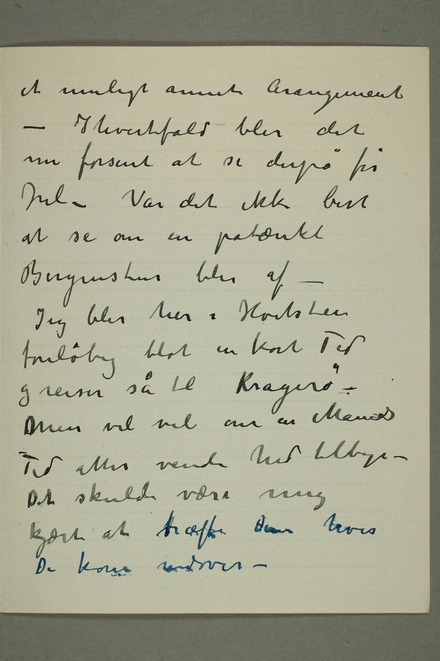 et muligt annet Arangement
— Ihvertfald blir det
nu forsent at se derpå før
Jul — Var det ikke best
at se om en påtænkt
blir af —
Jeg blir her i Hvitsten
foreløbig blot en kort Tid
g reiser så til Kragerø —
Men vil vel om en Maaneds
Tid atter vende hid tilbage —
Det skulde være mig
kjært at træffe Dem hvis
De kom nedover —